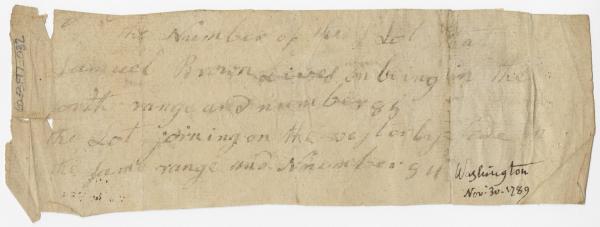 the Number of the Lot that
Samuel Brown Lives on being in the
north range and number 85
the Lot joining on the westerly side in
the Same range and Nnember 94
Washington
Nov. 30. 1789